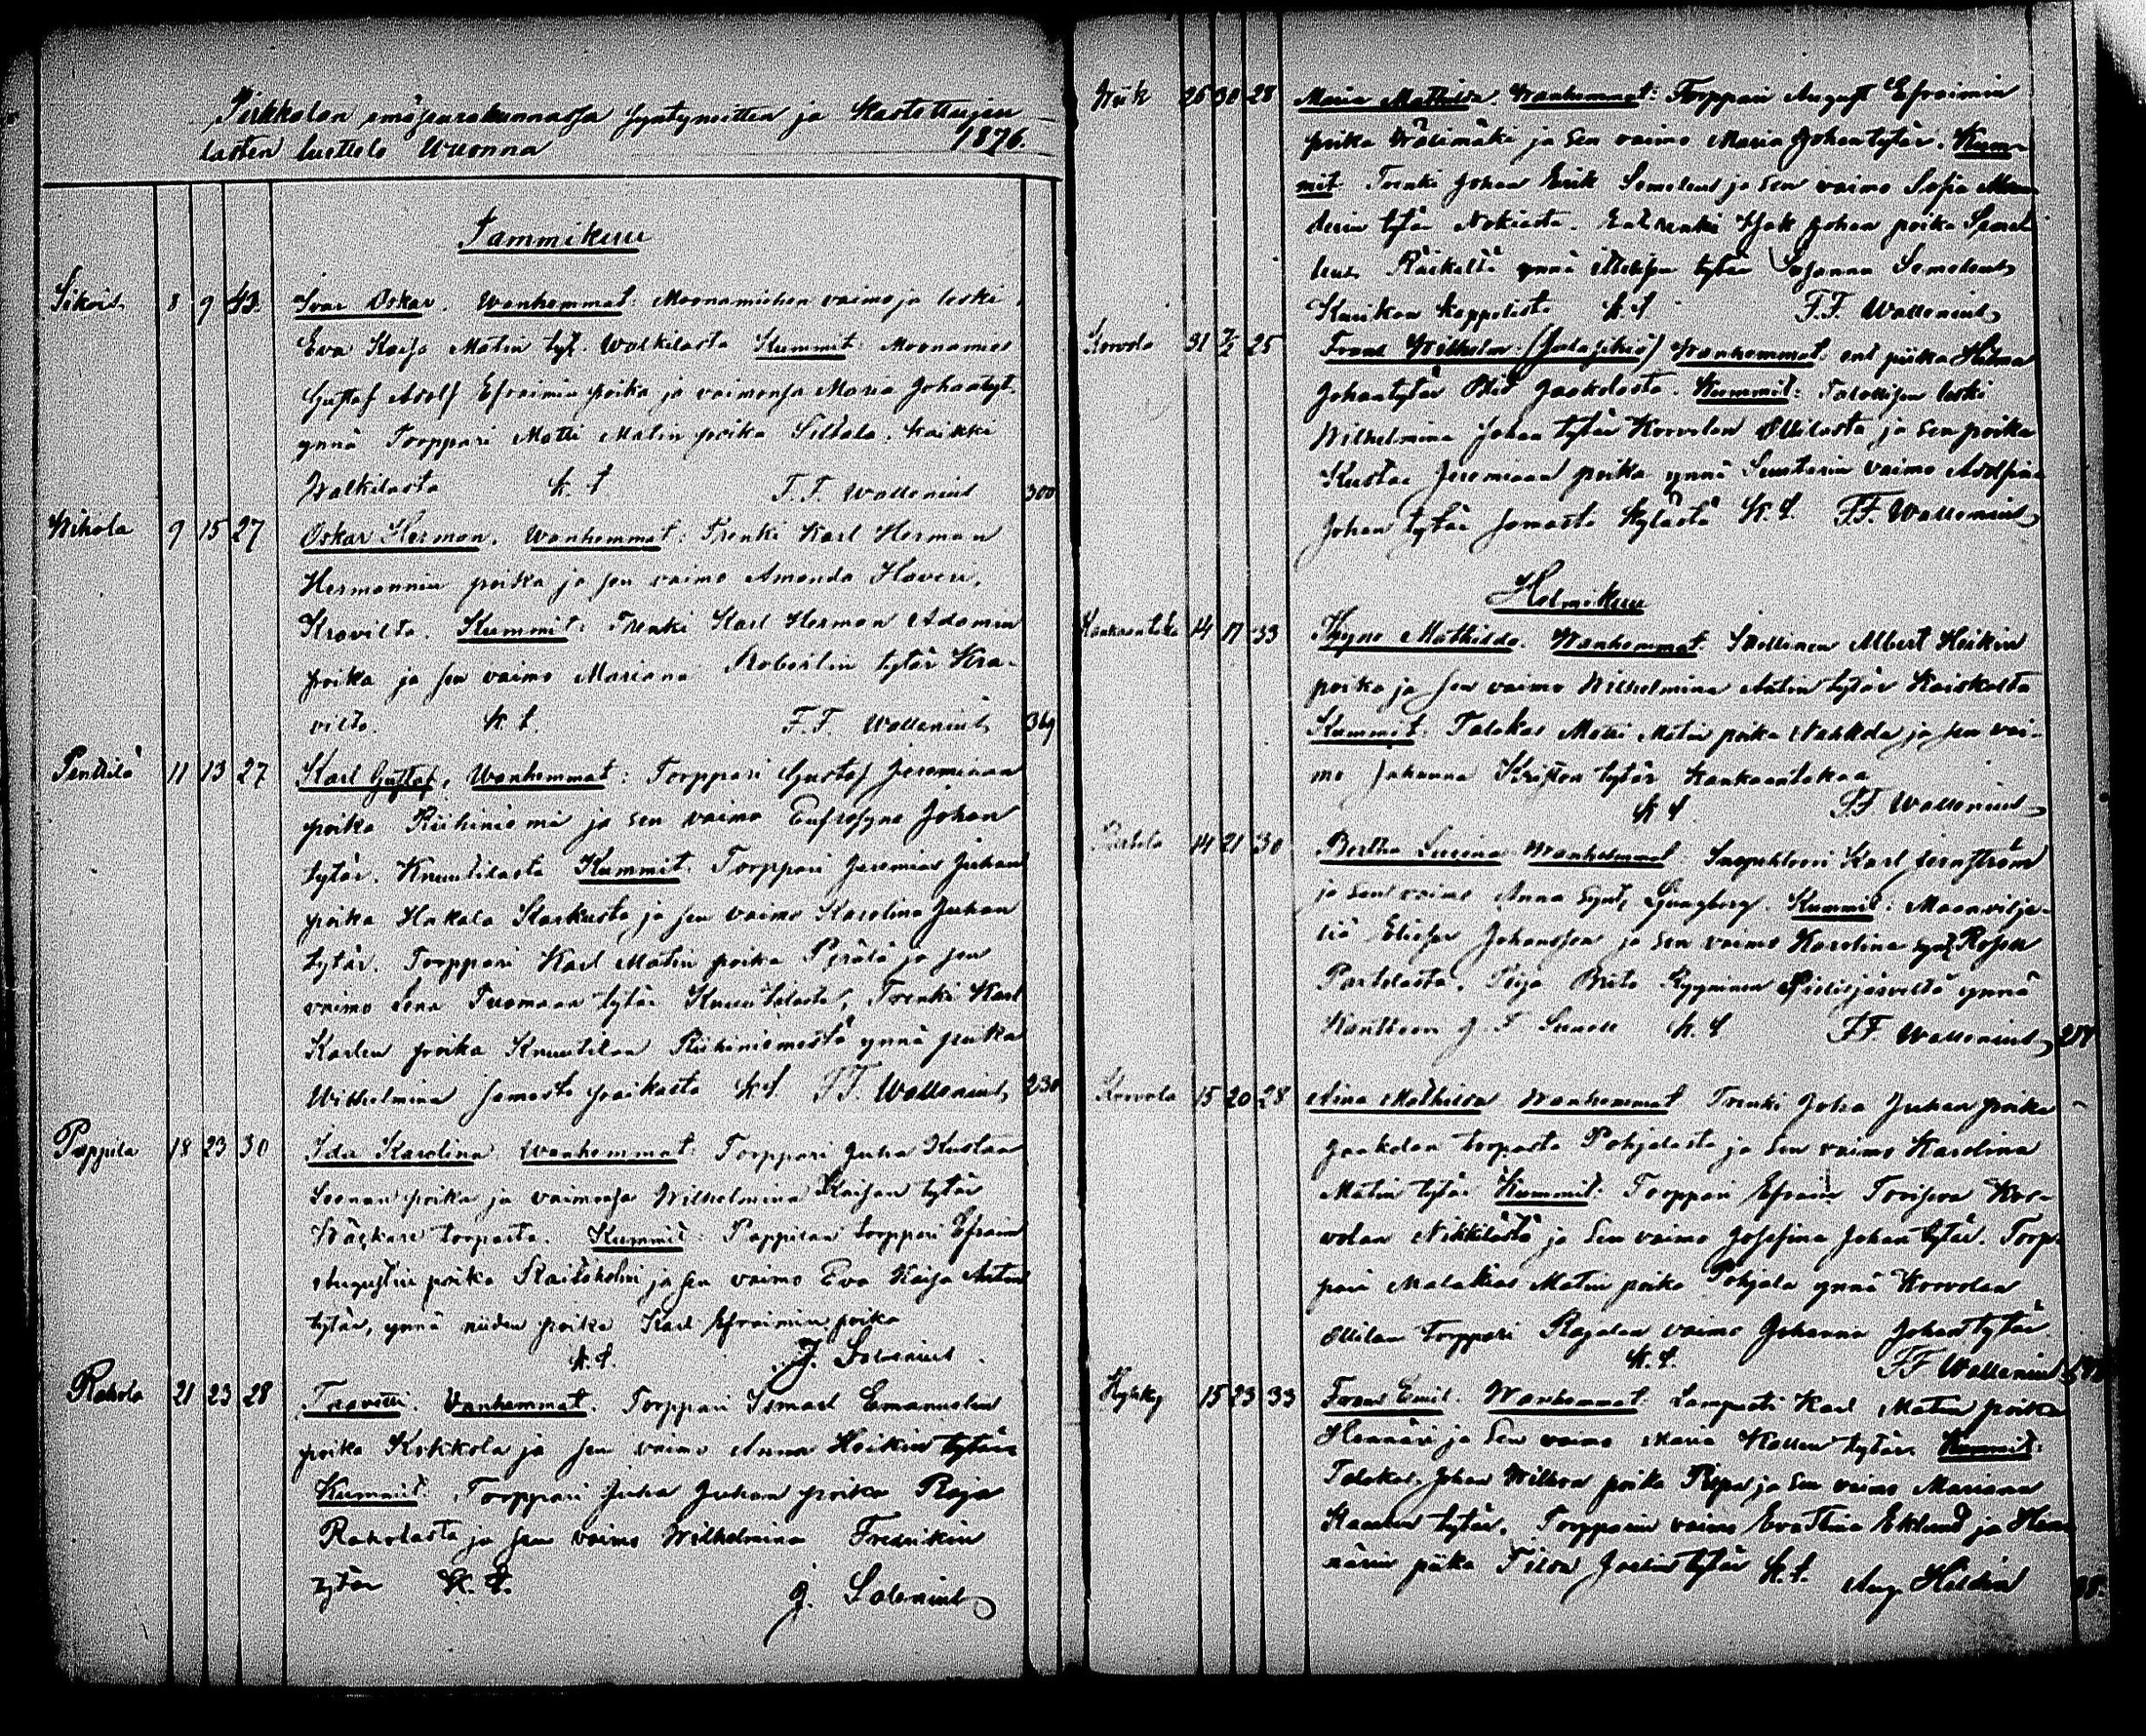 Pirkkalan emäseurakunnassa syntyneitten ja kastettujen
lasten luettelo Wuonna 1876.
Tammikuu
Sikois 8 9 43. Ivar Oskar. Wanhemmat: Moonamiehen vaimo ja leski
Eva Kaisa Matin tyt. Walkilasta Kummit: Moonamies
Gustaf Adolf Efraimin poika ja vaimonsa Maria Johantyt.
ynnä Torppari Matti Matin poika Siltala. kaikki
Walkilasta k. t. F. F. Wallenius 300
Nikola 9 15 27 Oskar Herman. Wanhemmat: Trenki Karl Herman
Hermannin poika ja sen vaimo Amanda Haveri,
Kravilta. Kummit: Trenki Karl Herman Adamin
poika ja sen vaimo Mariana Robertin tytär Kra-
vilta. k. t. F. F. Wallenius 369
Penttilä 11 13 27 Karl Gustaf, Wanhemmat: Torppari Gustaf Jeremiaan
poika Riihiniemi ja sen vaimo Eufrosyne Johan
tytär. Knuutilasta Kummit: Torppari Jeremias Juhan
poika Hakala Karkusta ja sen vaimo Karolina Juhan
tytär. Torppari Karl Matin poika Pjrälä ja sen
vaimo Lena Tuomaan tytär Knuutilasta, Trenki Karl
Karlen poika Knuutilan Riihiniemestä ynnä piika
Wilhelmina samasta paikasta k. t. F. F. Wallenius 230
Pappila 18 23 30 Ida Karolina Wanhemmat: Torppari Juha Kustaa
Leenan poika ja vaimonsa Wilhelmina Kaisan tytär
torpasta. Kummit: Pappilan torppari Efraim
Augustin poika Kaitaholm ja sen vaimo Eva Kaisa Antin
tytär, ynnä niiden poika Karl Efraimin poika
k. t. J. Salenius
Rahola 21 23 28 Taavetti. Vanhemmat: Torppari Ismael Emanuelin
poika Kokkola ja sen vaimo Anna Heikin tytär
Kummit: Torppari Juha Juhan poika Raja
Raholasta ja sen vaimo Wilhelmina Fredrikin
tytär k. t. J. Salenius
Wiik 26 30 28 Maria Mathilda. Wanhemmat: Torppari August Efraimin
poika Wälimäki ja sen vaimo Maria Johantytär. Kum-
mit: Trenki Johan Erik Semelius ja sen vaimo Sofia
tytär Nokiasta. Johan poika
ynnä tytär Susanna Semelius
kappelista k. t. F. F. Wallenius
Korvola 31 7/2 25 Frans Wilhelm. Wanhemmat: piika Hilma
Johantytär Jaakolasta. Kummit: Talollisen leski
Wilhelmina Johan tytär Korvolan Ollilasta ja sen poika
Kustaa Jeremiaan poika ynnä Suutarin vaimo Adolfina
Johan tytär samasta kylästä k. t. F. F. Wallenius
Helmikuu
Kankaantaka 14 17 33 Thyne Mathilda. Wanhemmat: Itsellinen Albert Heikin
poika ja sen vaimo Wilhelmina Antin tytär Kaiskasta
Kummit: Talokas Matti Matin poika Naskola ja sen vai-
mo Johanna Kriston tytär Kankaantakaa
k. t. F. F. Wallenius
14 21 30 Bertha Lucina Wanhemmat Inspehtori Karl Jernström
ja sen vaimo Anna synt, Ljungberg. Kummit: Maanvilje-
liä Elieser Johansson ja sen vaimo Karolina synt. Rosen
Partolasta. Piija Brita Ryynänen Pielisjärveltä ynnä
J. F. k. t. F. F. Wallenius
Korvola 15 20 28 Aina Mathilda Wanhemmat Trenki Juha Juhan poika
Jaakolan torpasta Pohjalasta ja sen vaimo Karolina
Matin tytär Kummit: Torppari Efraim Torisera Kor-
volan Nikkilästä ja sen vaimo Josefina Johan tytär. Torp-
pari Malakias Matin poika Pohjala ynnä Korvolan
Ollilan torppari Rajalan vaimo Johanna Johantytär.
k. t. F F Wallenius
Hyhky 15 23 33 Frans Emil. Wanhemmat: Lampuoti Karl Matin poika
Hennäri ja sen vaimo Maria Kallen tytär. Kummit:
Talokas, Johan Wilhon poika Pispa ja sen vaimo Mariana
tytär. Torpparin vaimo Eva Stina Eklund ja Hen-
närin piika Joelin tytär k. t. Aug. Heldén